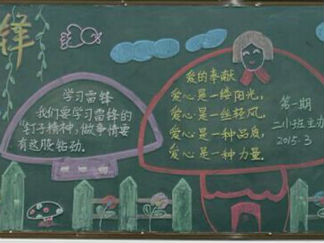 锋
学习雷锋
我们要学习雷锋的
"钉子精神",做事情要
有这股钻劲。
爱的奉献
爱心是一缕阳光,
爱心是一丝杨风,
爱心是一种品质,
爱心是一种力量.
第一期
二小班主办
2015.3